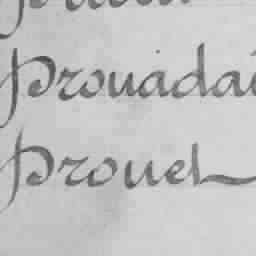 Prouadai
Prouel